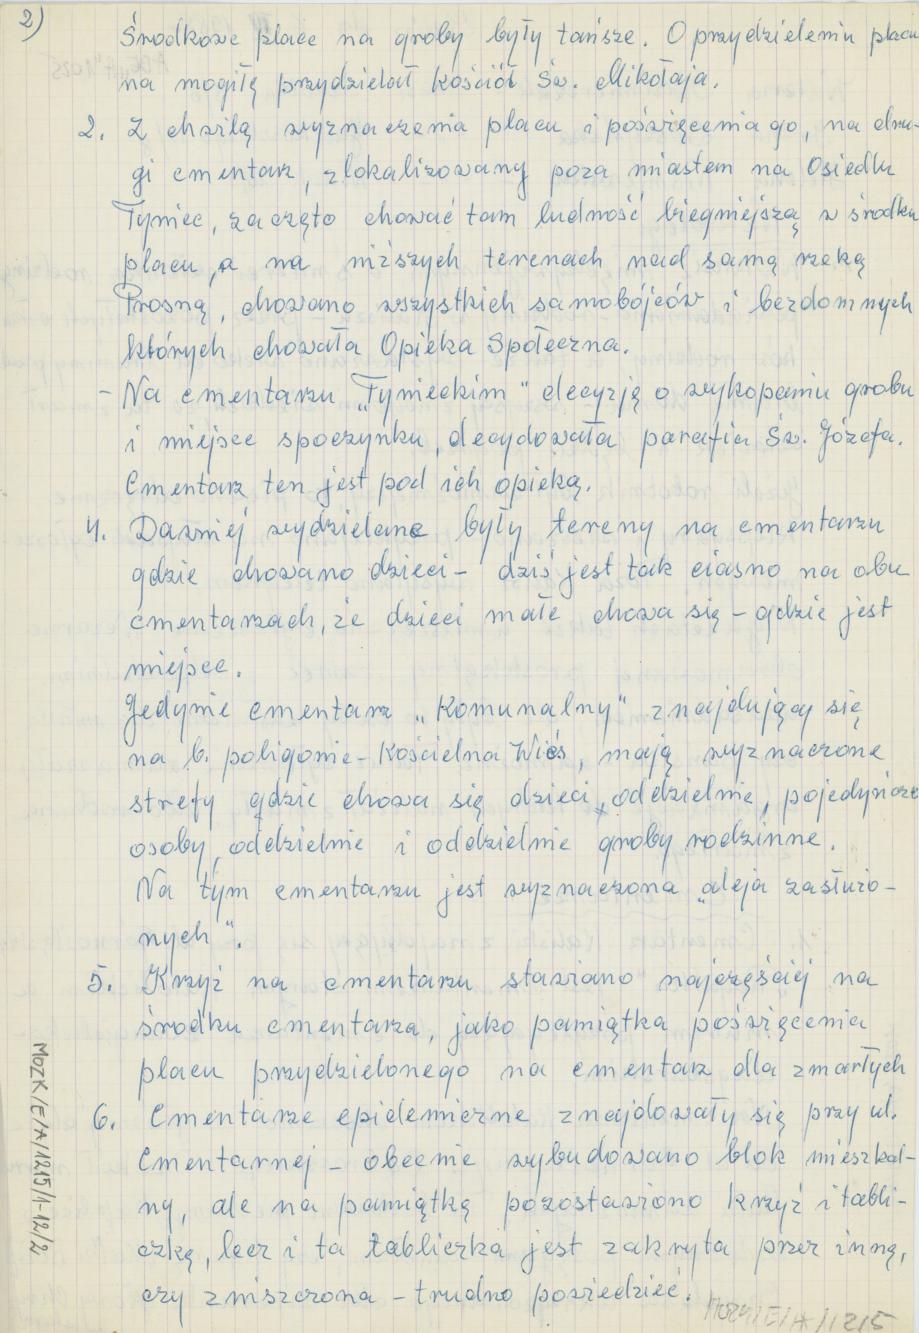 2)
Środkowe place na groby były tańsze. O przydzieleniu placu
na mogiłę przydzielał Kościół Św. Mikołaja.
2. Z chwilą wyznaczenia placu i poświęcenia go, na dru-
gi cmentarz, zlokalizowany poza miastem na Osiedlu
Tyniec, zaczęto chować tam ludność biegniejszą w środku
placu, a na niższych terenach nad samą rzeką
Prosną, chowano wszystkich samobójców i bezdomnych
których chowała Opieka Społeczna.
- Na cmentarzu „Tynieckim" decyzję o wykopaniu grobu
i miejsce spoczynku, decydowała parafia Św. Józefa.
Cmentarz ten jest pod ich opieką.
4. Dawniej wydzielane były tereny na cmentarzu
gdzie chowano dzieci - dziś jest tak ciasno na obu
cmentarzach, że dzieci małe chowa się - gdzie jest
miejsce.
Jedynie cmentarz „Komunalny" znajdujący się
na b. poligonie - Kościelna Wieś, mają wyznaczone
strefy gdzie chowa się dzieci, oddzielnie, pojedyńcze
osoby, oddzielnie i oddzielnie groby rodzinne.
Na tym cmentarzu jest wyznaczona „aleja zasłużo-
nych".
5. Krzyż na cmentarzu stawiano najczęściej na
środku cmentarza, jako pamiątka poświęcenia
placu przydzielonego na cmentarz dla zmarłych
6. Cmentarze epidemiczne znajdowały się przy ul.
Cmentarnej - obecnie wybudowano blok mieszkal-
ny, ale na pamiątkę pozostawiono krzyż i tabli-
czkę, lecz i ta tabliczka jest zakryta przez inną,
czy zniszczona - trudno powiedzieć.
MOZK/E/A/1215/1-12/2
MOZK/E/A/1215